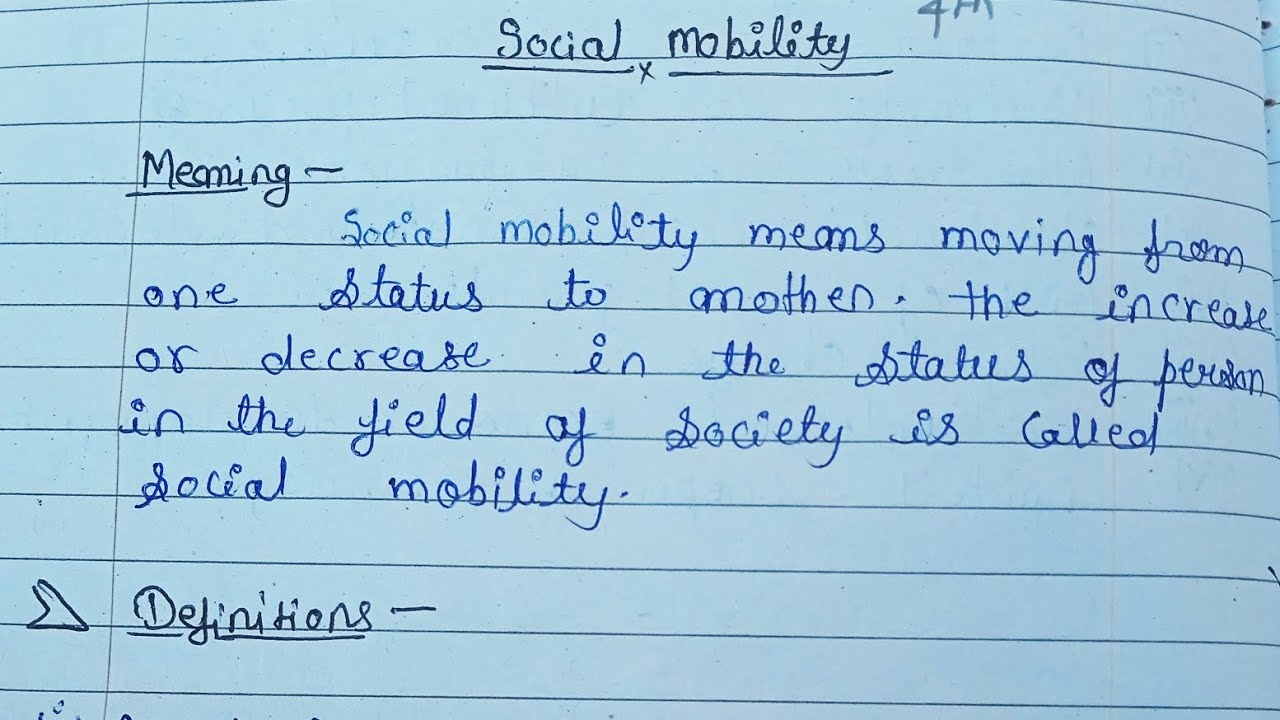 4th
Social mobility
Meaning —
Social mobility means moving from
one status to another. the increase
or decrease in the status of person
in the field of society is called
social mobility.
Definitions —